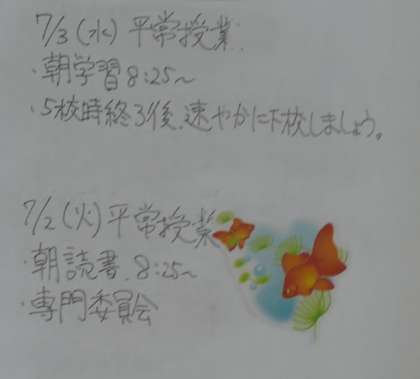 7/3(水)平常授業
・朝学習8:25~
・5校時終了後、速やかに下校しましょう。
7/2(火)平常授業
・朝読書、8:25~
・専門委員会